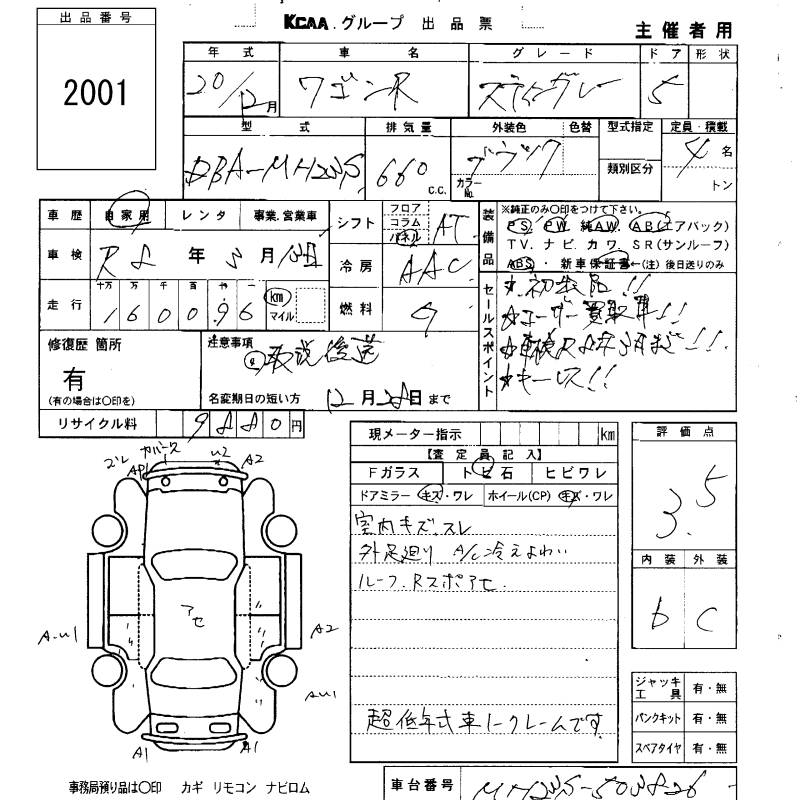 出品番号
2001
KCAA.グループ 出品票
主催者用
年式 車名 グレード ドア 形状
20/12月 ワゴンR スティングレー 5
型式 排気量 外装色 色替 型式指定 定員・積載
DBA-MH23S 660 c.c. ブラック カラーNo. 類別区分 4名 トン
車歴 自家用 レンタ 事業.営業車
車検 R8年5月
走行 十万 万 千 百 十 一
160096 km マイル
シフト フロア コラム パネル AT
冷房 AAC
燃料 G
装備品
※純正のみ○印をつけて下さい。
PS. PW. 純AW. AB(エアバック)
TV. ナビ. カワ. SR(サンルーフ)
ABS・ 新車保証書←(注)後日送りのみ
セールスポイント
☆初出品!!
☆ユーザー買取車!!
☆車検R8年5月まで!!
☆キーレス!!
修復歴 箇所
有
(有の場合は○印を)
注意事項
取説後送
名変期日の短い方 12月28日まで
リサイクル料 9880円
現メーター指示 km
【査定員記入】
Fガラス トビ石 ヒビワレ
ドアミラー キズ・ワレ ホイール(CP) キズ・ワレ
室内キズ.スレ
外足廻り A/C冷えよわい
ルーフ.Rスポアセ.
超低年式車ノークレームです
評価点
3.5
内装 外装
b C
ジャッキ工具 有・無
パンクキット 有・無
スペアタイヤ 有・無
カバース
U2
A2
アセ
A-U1
A2
AU1
A1
A1
事務局預り品は○印 カギ リモコン ナビロム
車台番号 MH23S-503826